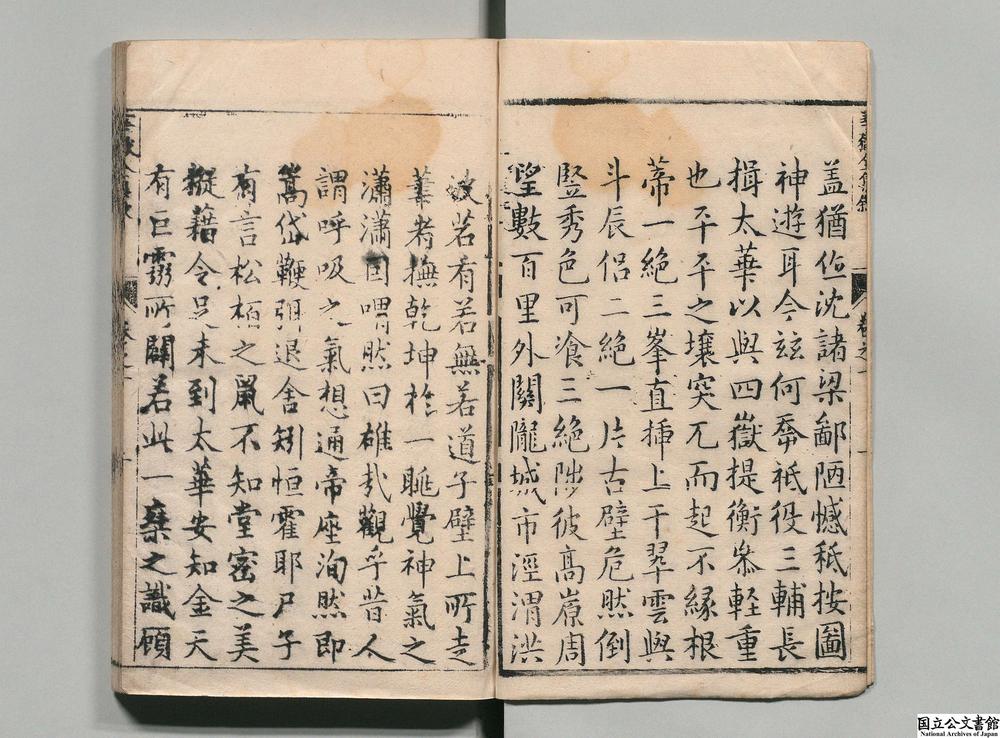 蓋猶伯沈諸梁鄙陋憾秪按圖
神遊耳今玆何辱祗役三輔長
揖太華以與四嶽提衡叅軽重
也平平之壤突兀而起不緣根
蒂一絶三峯直揷上干翠雲與
斗辰侶二絶一片古壁危然倒
竪秀色可飡三絶陟彼髙㠂周
望數百里外関隴城市涇渭洪
波若有若無若道子壁上所走
筆者撫乾坤扵一眺覺神氣之
瀟瀟固喟然曰雄㢤觀乎昔人
謂呼吸之氣想通帝座洵然即
嵩岱鞭弭退舍矧恒霍耶尸子
有言松栢之鼠不知堂宻之美
縱藉令足未到太華安知金天
有巨靈所闢若此一産之識顧
国立公文書館
National Archives of Japan